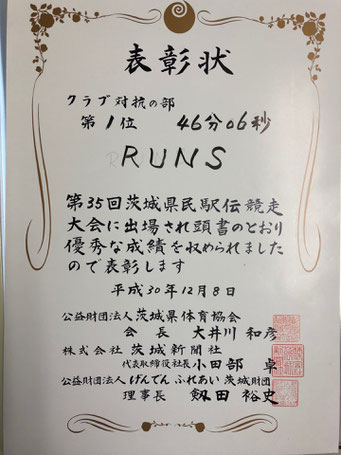 表彰状
クラブ対抗の部
第1位 46分06秒
RUNS
第35回茨城県民駅伝競走
大会に出場され頭書のとおり
優秀な成績を収められました
ので表彰します
平成30年12月8日
公益財団法人 茨城県体育協会
会長 大井川 和彦
株式会社 茨城新聞社
代表取締役社長 小田部 卓
公益財団法人 げんでんふれあい茨城財団
理事長 剱田 裕史